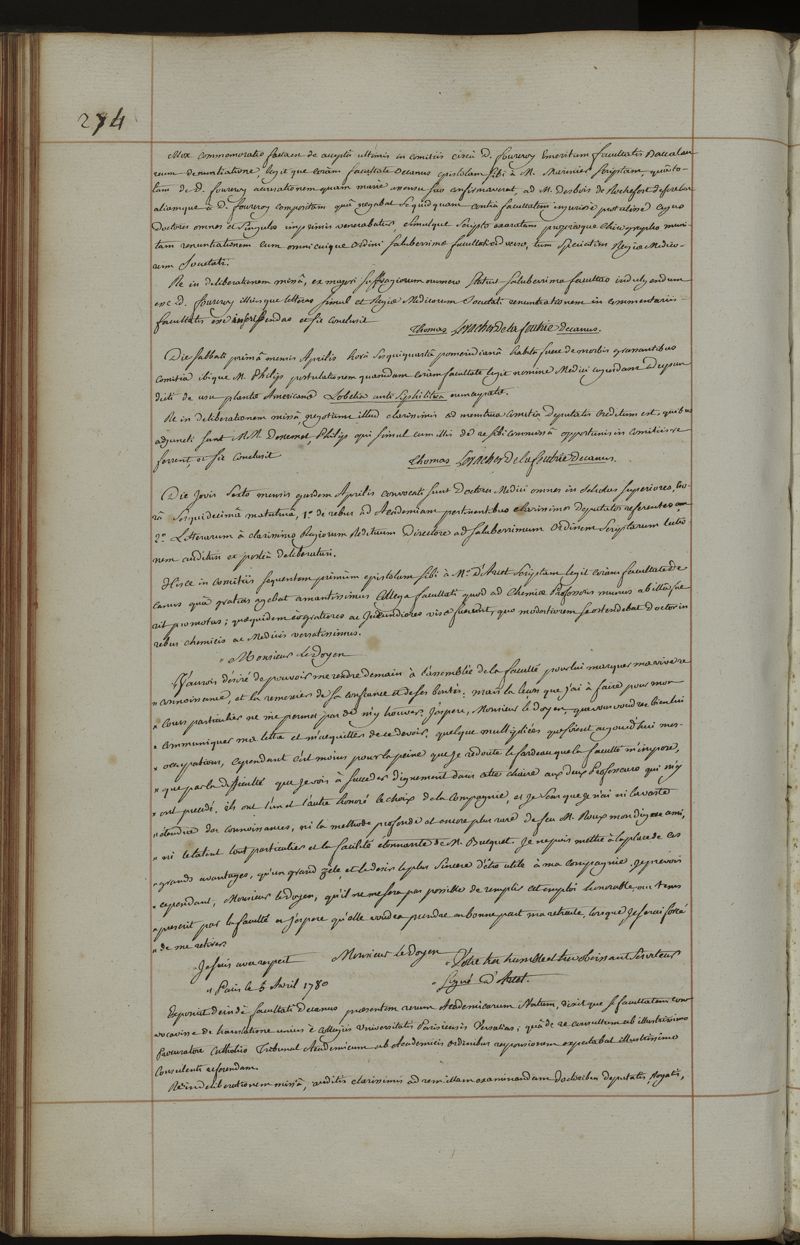 274
Mox commemoratio facta de accepta ultimis in comitiis circa D. fourcroy Emeritum facultatis Baccalau
reum denuntiatione, legit que coràm facultate decanus epistolam sibi à M. scriptam, quâ to-
tam de D. fourcroy accusationem quam manu mensu suo confirmaverat, ad M. Desbois de Rochefort deferebat
aliamque à D. fourcroy compositam quâ negabat se quidquam contra facultatem injuriosè protulisse cujus
Doctores omnes et singulos imprimis venerabatur, simulque scripto exaratam proprioque chirographo muni-
tam renuntiationem cum omni cuique ordini saluberrimae facultati adverso, tum speciatim Regiae Medico-
rum Societati.
Re in deliberationem missâ, ex majori suffragiorum numero statuit saluberrima facultas indulgendum
esse D. fourcroy illiusque litteras simul et Regiae Medicorum Societati renuntiationem in commentariis
facultatis esse et sic conclusit
Thomas Levacher de la feutrie decanus.
Die sabbati primâ mensis Aprilis horâ sesquiquartâ pomeridianâ habita fuere de morbis grassantibus
comitia ibique M. Philip postulationem quamdam coràm facultate legit nomine Medici cujusdam ad ejus
de usu plantae Americanae Lobelia anti Syphilitica nuncupatae.
Re in deliberationem missâ, negotium illud clarissimis ad menstrua comitia deputatis creditum est, quibus
adjuncti sunt M.M. Dessemet, Philip qui simul cum illis de re sibi commissâ opportunis in comitiis re-
ferrent, et sic conclusit
Thomas Levacher de la feutrie Decanus.
Die Jovis sexto mensis ejusdem Aprilis convocati sunt Doctores Medici omnes in scholas superiores, ho-
râ sesquidecimâ matutinâ, 1.° de rebus ad Academiam pertinentibus clarissimos deputatos referentes
2.° Litterarum à clarissimo Regiorum Aedituum Directore ad saluberrimum ordinem scriptarum lectio-
nem audituri ex posteà deliberaturi.
Hisce in comitiis sequentem primùm epistolam sibi à M.r d'Arcet scriptam legit coràm facultate de-
canus quâ gratias agebat amantissimus collega facultati quod ad chemiae Professoris munus ab illâ fue-
rit promotus; quae quidem eò gratiores ac jucundiores visae fuerunt, quo modestiorem se ostendebat doctor in
rebus chemicis ac Medicis versatissimus.
" Monsieur le Doyen
J'aurois désiré de pouvoir me rendre demain à l'assemblée de la faculté pour lui marquer ma vive re
" connoissance, et la remercier de sa confiance et de ses bontés: mais la leçon que j'ai à faire pour mon
" cours particulier ne me permet pas de m'y trouver. J'espere, Monsieur le Doyen, que vous voudrez bien lui
" communiquer ma lettre et m'acquitter de ce devoir, quelque multipliées que soient aujourd'hui mes-
" occupations, cependant c'est moins pour la peine que je redoute le fardeau que la faculté m'impose,
" que par la difficulté que je vois à succeder dignement dans cette chaire aux deux Professeurs qui m'y
" ont precedé. ils ont l'un et l'autre honoré le choix de la compagnie, et je sens que je n'ai ni la vaste
" étendue des connoissances, ni la methode profonde et encore plus rare de feu M. Roux mon digne ami,
" ni le talent tout particulier et la facilité étonnante de M. Bucquet. Je ne puis mettre à la place de ces
" grands avantages, qu'un grand zèle, et le desir le plus sincere d'être utile à ma compagnie. Je prevois
" cependant, Monsieur le Doyen, qu'il ne me sera pas possible de remplir cet emploi honorable, au tems
" prescrit par la faculté et j'espere qu'elle voudra prendre en bonne part ma retraite, lorsque je serai forcé
" de me retirer
" Je suis avec respect Monsieur le Doyen Votre tres humble et tres obeissant serviteur
" Paris le 5 Avril 1780 " Signé d'Arcet.
Exposuit deindè facultati Decanus praesentem rerum Academicarum statum, dixit que se facultatem con-
vocavisse de translatione unius è collegiis Universitatis Parisiensis versatas; quâ de re consultum ab illustrissimo
Procuratore Catholico Tribunal Academicum ab Academicis ordinibus responsionem expectabat illustrissimo
consulenti referendam.
Re in deliberationem missâ, auditis clarissimis ad rem illam examinandam doctoribus deputatis, rogatis,